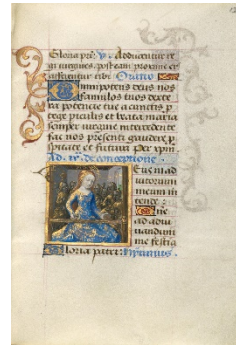 Gloria pr̄i. V̄. Adducentur re
gi virgines post eam proxime ei
afferentur tibi. Oratio
Omnipotens deus nos
famulos tuos dexte
ra potencie tue a cunctis p
tege periculis et beata maria
semper virgine intercedente
fac nos presenti gaudere p
spicate et futura. Per xpm̄.
Ad. de conceptione.
Eus in ad
iutorium
meum in
tende.
ne ad adiu
uandum
me festia
Gloria patri. Hymnus.